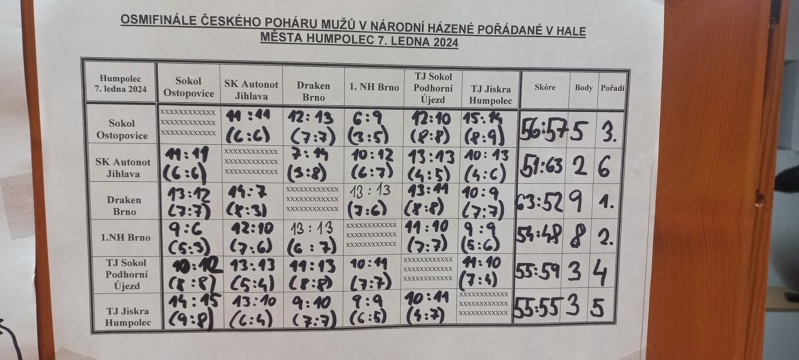 OSMIFINÁLE ČESKÉHO POHÁRU MUŽŮ V NÁRODNÍ HÁZENÉ POŘÁDANÉ V HALE
MĚSTA HUMPOLEC 7. LEDNA 2024
Humpolec 7. ledna 2024 Sokol Ostopovice SK Autonot Jihlava Draken Brno 1. NH Brno TJ Sokol Podhorní Újezd TJ Jiskra Humpolec Skóre Body Pořadí
Sokol Ostopovice xxxxxxxxxxxx xxxxxxxxxxxx xxxxxxxxxxxx 11:11 (6:6) 12:13 (7:7) 6:9 (3:5) 12:10 (8:8) 15:14 (8:9) 56:57 5 3.
SK Autonot Jihlava 11:11 (6:6) xxxxxxxxxxxx xxxxxxxxxxxx xxxxxxxxxxxx 7:14 (3:8) 10:12 (6:7) 13:13 (4:5) 10:13 (4:6) 51:63 2 6
Draken Brno 13:12 (7:7) 14:7 (8:3) xxxxxxxxxxxx xxxxxxxxxxxx xxxxxxxxxxxx 13:13 (7:6) 13:11 (8:8) 10:9 (7:7) 63:52 9 1.
1.NH Brno 9:6 (5:3) 12:10 (7:6) 13:13 (6:7) xxxxxxxxxxxx xxxxxxxxxxxx xxxxxxxxxxxx 11:10 (7:7) 9:9 (5:6) 54:48 8 2.
TJ Sokol Podhorní Újezd 10:12 (8:8) 13:13 (5:4) 11:13 (8:8) 10:11 (7:7) xxxxxxxxxxxx xxxxxxxxxxxx xxxxxxxxxxxx 11:10 (7:4) 55:59 3 4
TJ Jiskra Humpolec 14:15 (9:8) 13:10 (6:4) 9:10 (7:7) 9:9 (6:5) 10:11 (4:7) xxxxxxxxxxxx xxxxxxxxxxxx xxxxxxxxxxxx 55:55 3 5